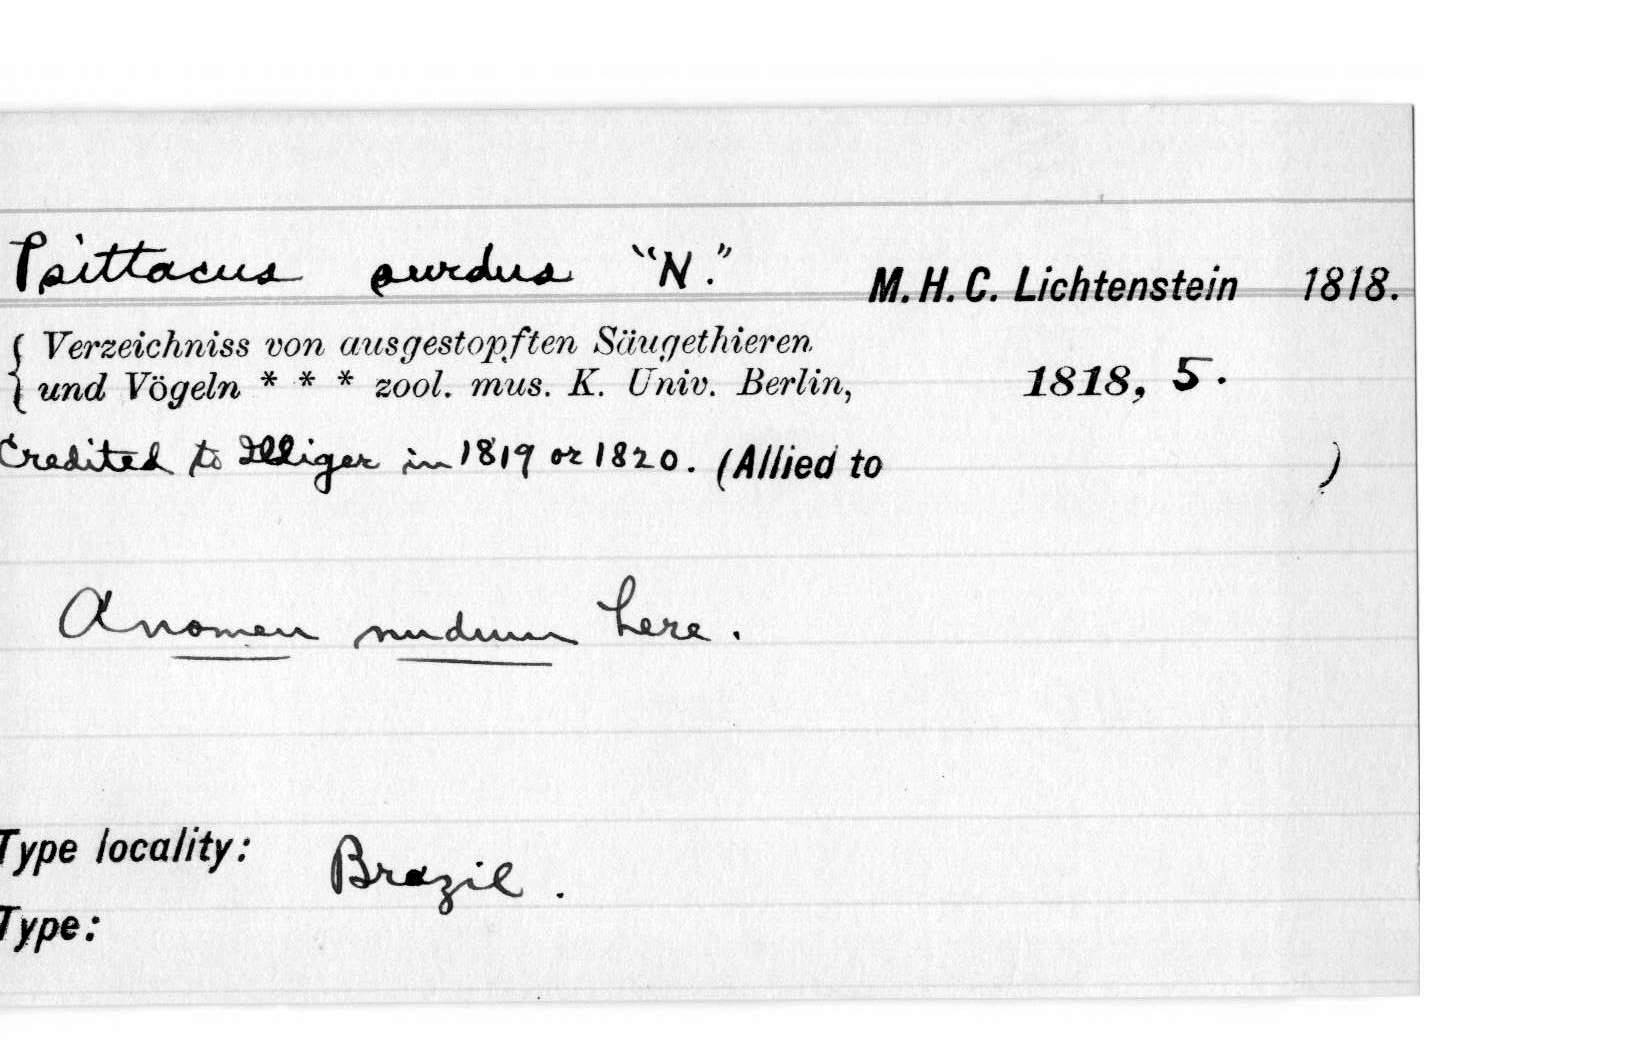 Psittacus surdus "N." M. H. C. Lichtenstein 1818.
{ Verzeichniss von ausgestopften Säugethieren
und Vögeln * * * zool. mus. K. Univ. Berlin, 1818, 5.
Credited to Illiger in 1819 or 1820. (Allied to )
A nomen nudum here.
Type locality: Brazil.
Type: